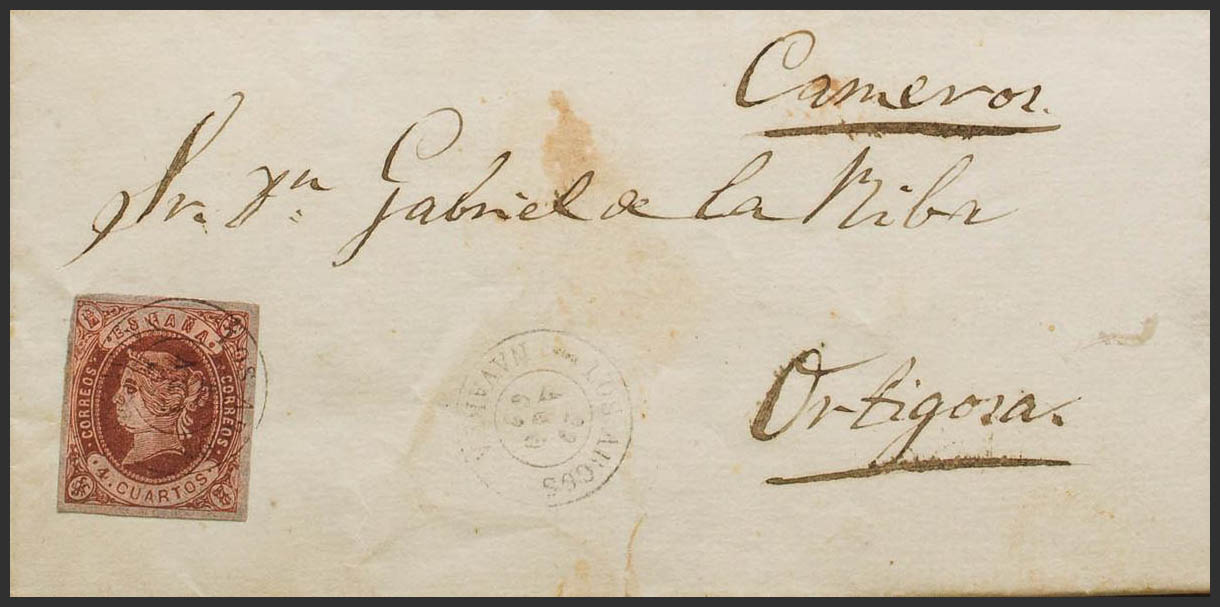 Cameros.
Sr. Dn. Gabriel de la Riba
Ortigosa.
ESPAÑA
CORREOS
CORREOS
4 CUARTOS
LOS ARCOS
NAVARRA